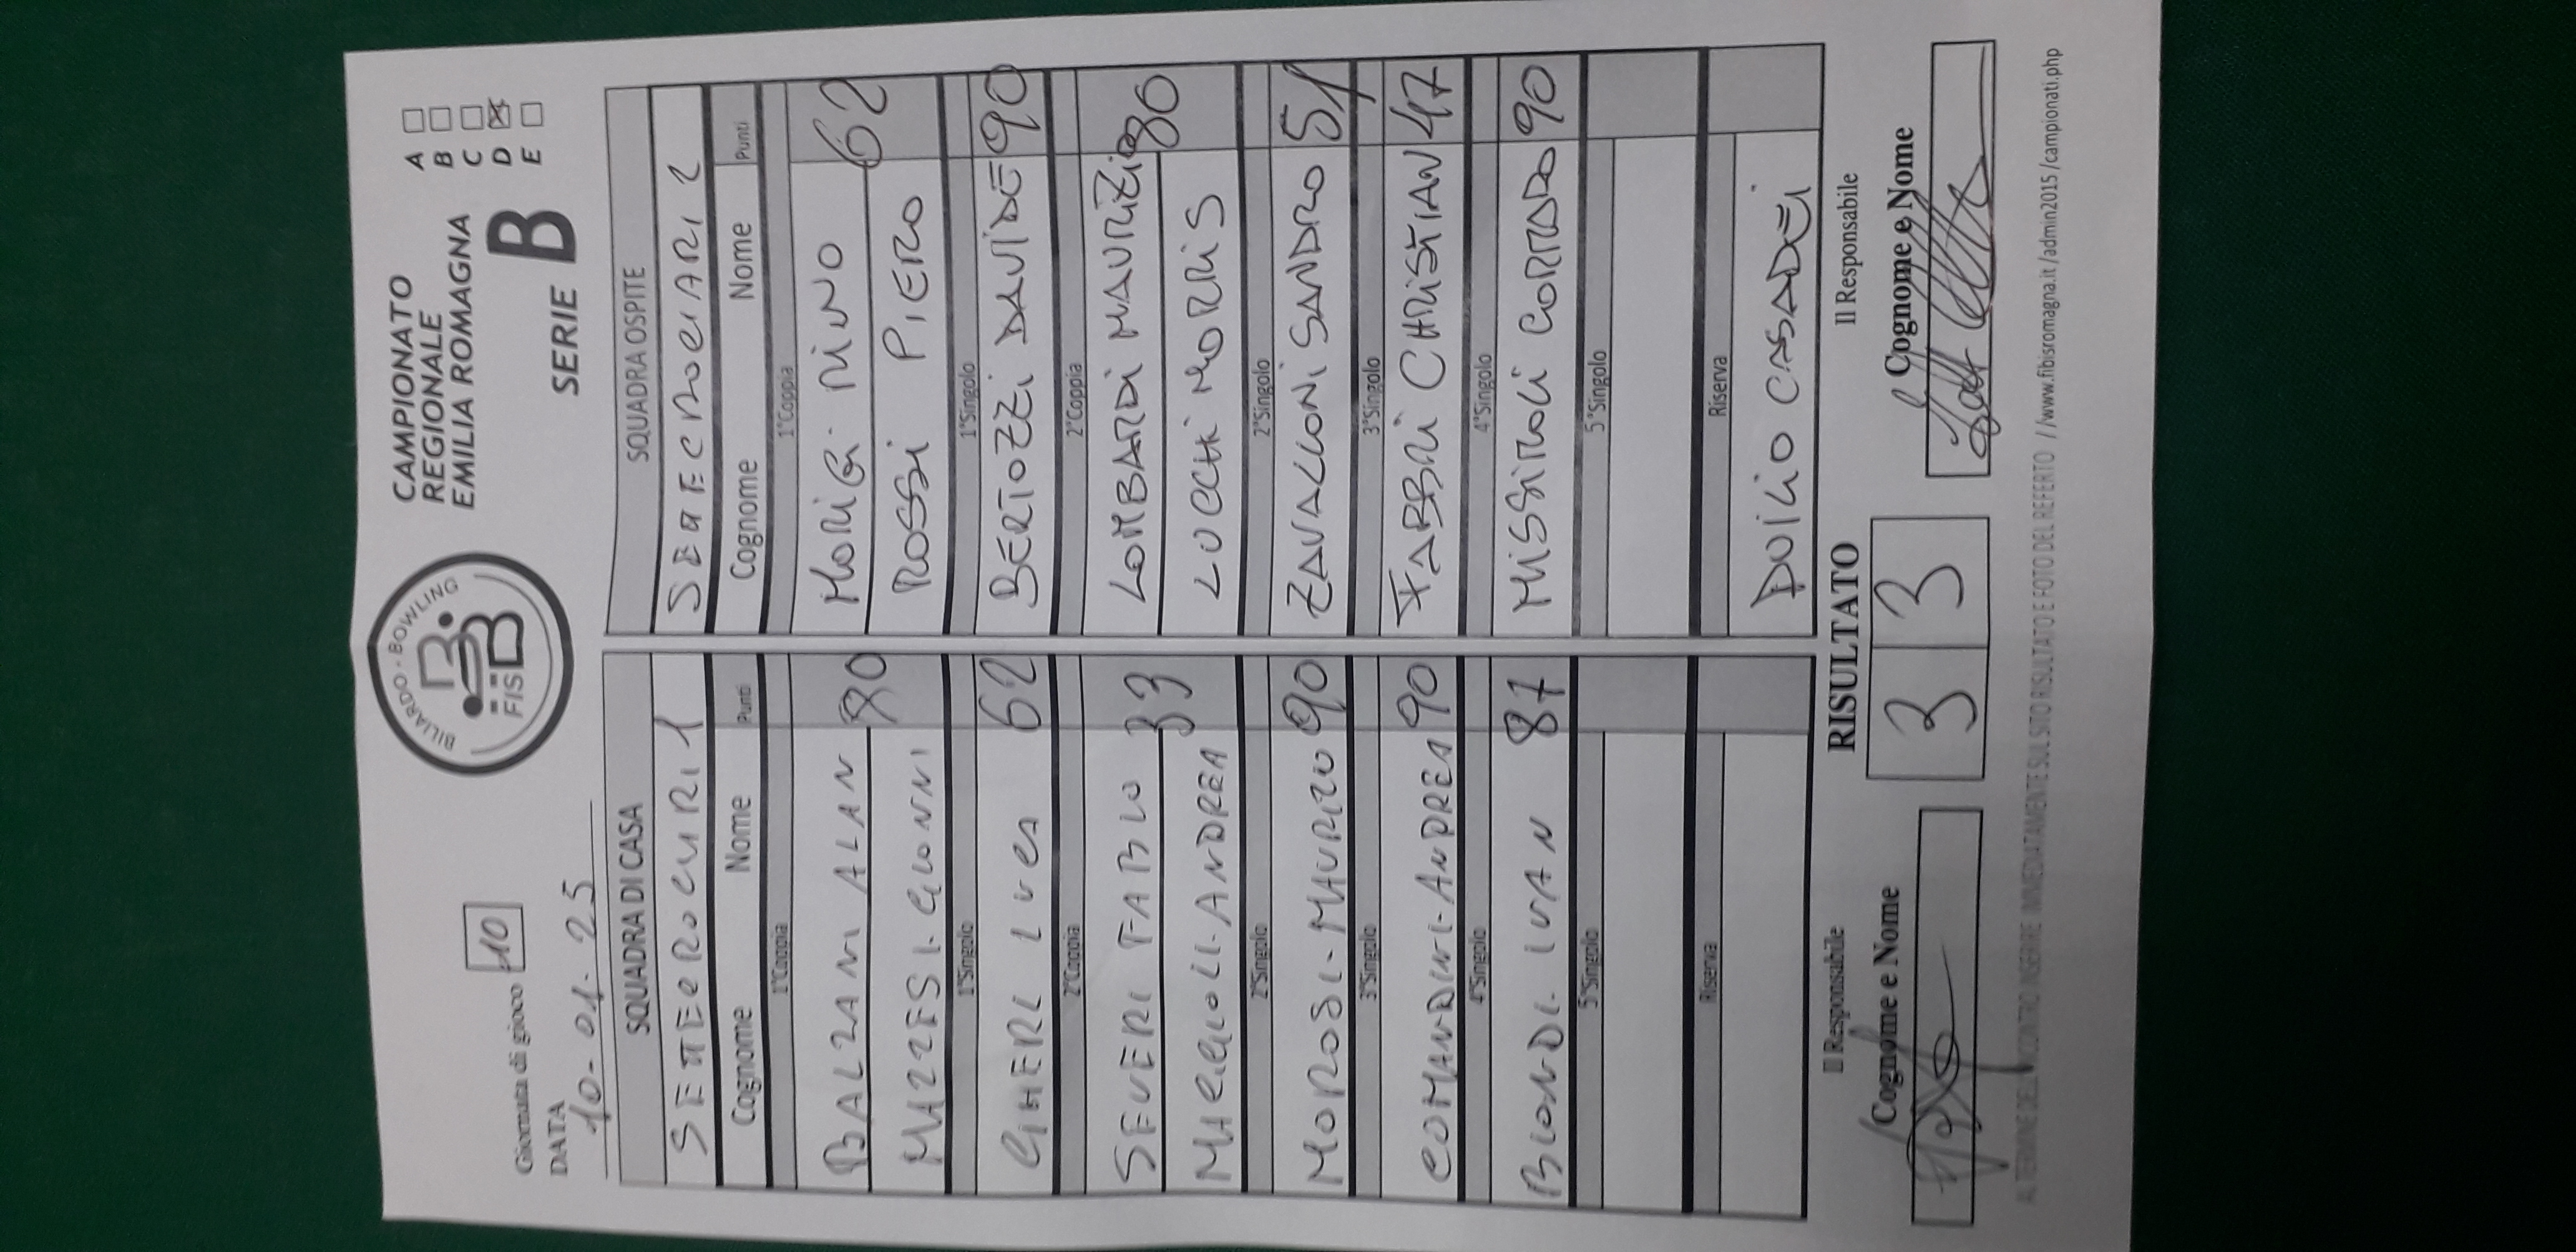 Giornata di gioco 10
DATA
10-01-25
BILIARDO - BOWLING
FISBB
CAMPIONATO
REGIONALE
EMILIA ROMAGNA
SERIE B
A
B
C
D
E
SQUADRA DI CASA
SETTECROCIARI 1
Cognome Nome Punti
1°Coppia
BALZANI ALAN 80
MAZZESI GIONNI
1°Singolo
GHERI LUCA 62
2°Coppia
SEVERI FABIO 33
MAGGIOLI ANDREA
2°Singolo
MOROSI MAURIZO 90
3°Singolo
COMANDINI ANDREA 90
4°Singolo
BIONDI IVAN 87
5°Singolo
Riserva
SQUADRA OSPITE
SETTECROCIARI 2
Cognome Nome Punti
1°Coppia
MORIGI RINO 62
ROSSI PIERO
1°Singolo
BERTOZZI DAVIDE 90
2°Coppia
LOMBARDI MAURIZIO 80
LUCCHI MORRIS
2°Singolo
ZAVALLONI SANDRO 51
3°Singolo
FABBRI CHRISTIAN 47
4°Singolo
MISSIROLI CORRADO 90
5°Singolo
Riserva
DUILIO CASADEI
Il Responsabile
Cognome e Nome
RISULTATO
3 3
Il Responsabile
Cognome e Nome
AL TERMINE DELL'INCONTRO INSERIRE IMMEDIATAMENTE SUL SITO RISULTATO E FOTO DEL REFERTO //www.fibisromagna.it/admin2015/campionati.php